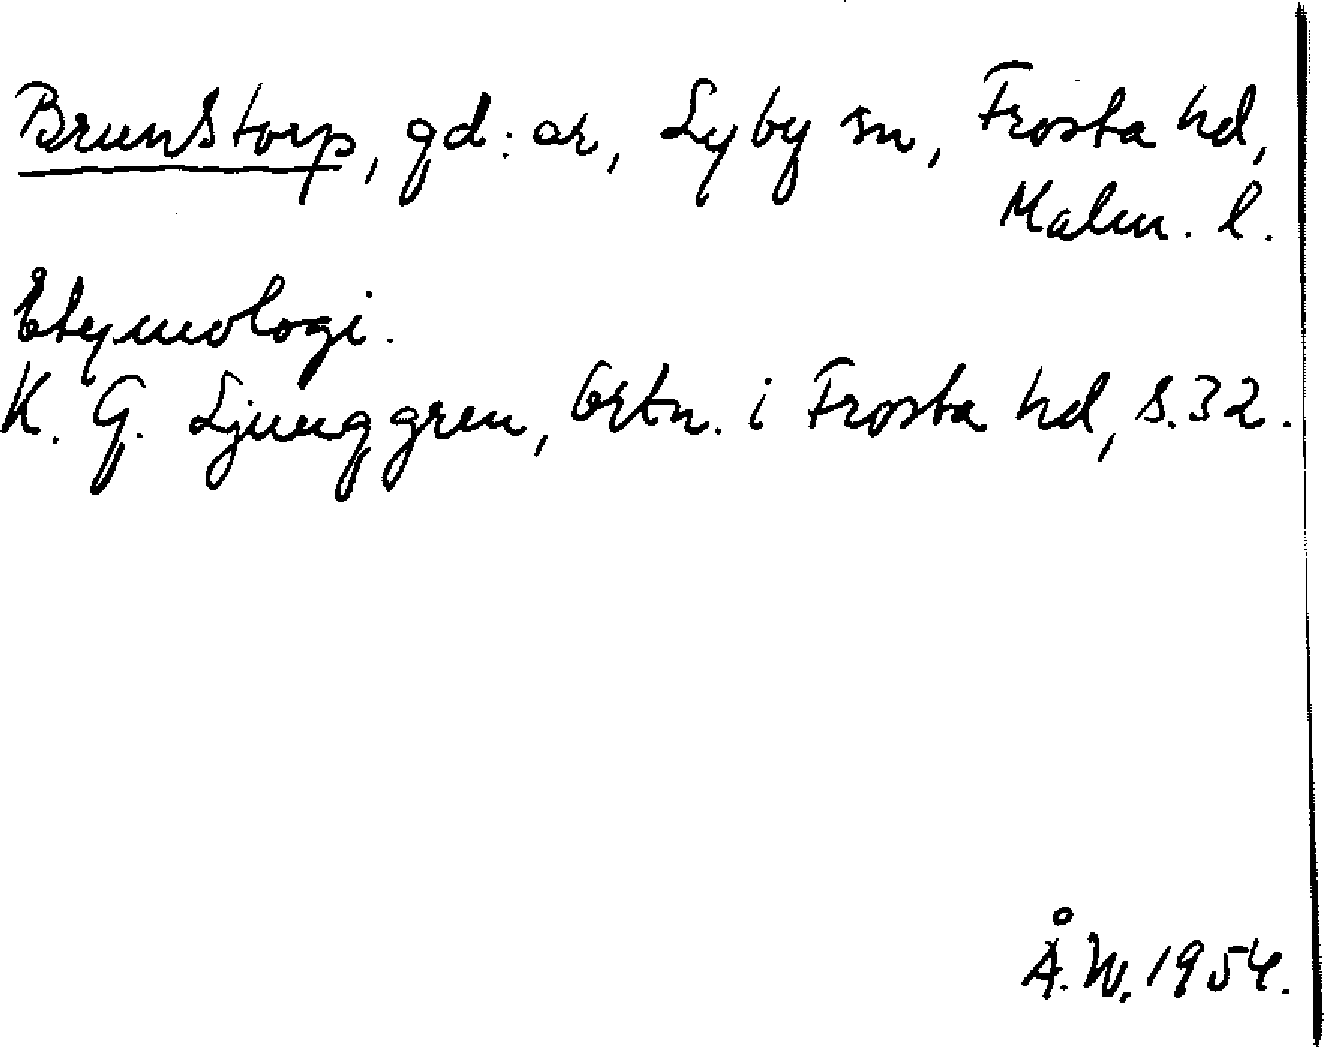 Brunstorp, gd:ar, Lyby sn, Frosta hd,
Malm. l.
Etymologi.
K. G. Ljunggren, Ortn. i Frosta hd, s. 32.
Å. W. 1954.